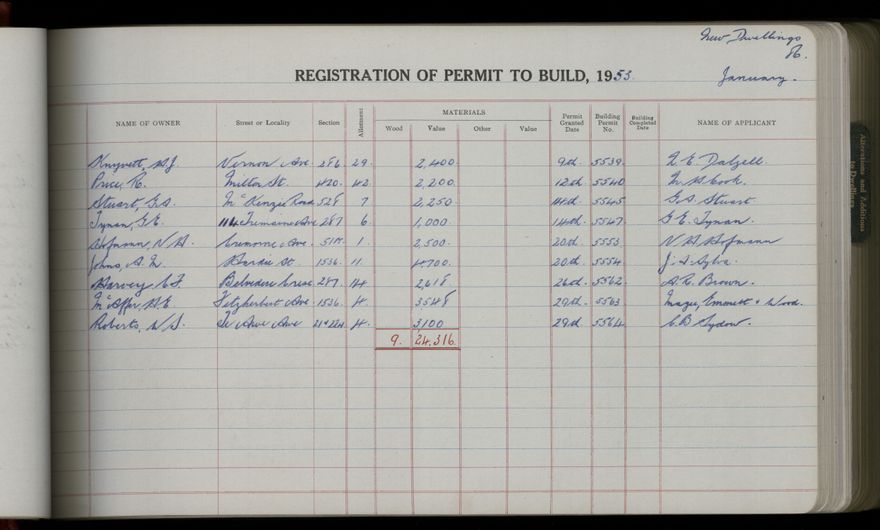 New Dwellings
REGISTRATION OF PERMIT TO BUILD, 1953.
January.
NAME OF OWNER Street or Locality Section Allotment MATERIALS Wood Value Other Value Permit Granted Date Building Permit No. Building Completed Date NAME OF APPLICANT
Knyvett, Vernon Ave. 286 29. 2,400. 9th. 5539. E. Dalzell.
Price, R. Milton St. 420. 42. 2,200. 12th 5540 Cook.
Stuart, G.A. McKenzie Road 528 7 2,250. 14th. 5545 G.A. Stuart
Tynan, G.E. 114 Tremaine Ave 287 6. 1,000. 14th. 5547. G.E. Tynan.
Hofmann, N.H. Ave. 1. 2,500. 20th. 5553 N.H. Hofmann
Johns, Hardie St. 1536. 11. 4700. 20th. 5554 J. Sylva.
Harvey C.F. Belvedere Cresc. 287. 14 2,618. 26th. 5562 A.R. Brown.
Fitzherbert Ave. 1536. 4. 3548 29th. 5563 Emmett & Wood.
Roberts, W.S. Te Awe Awe 4. 3100 29th 5564. C.B. Sydow.
9. 24,316.
Alterations and Additions
to Dwellings